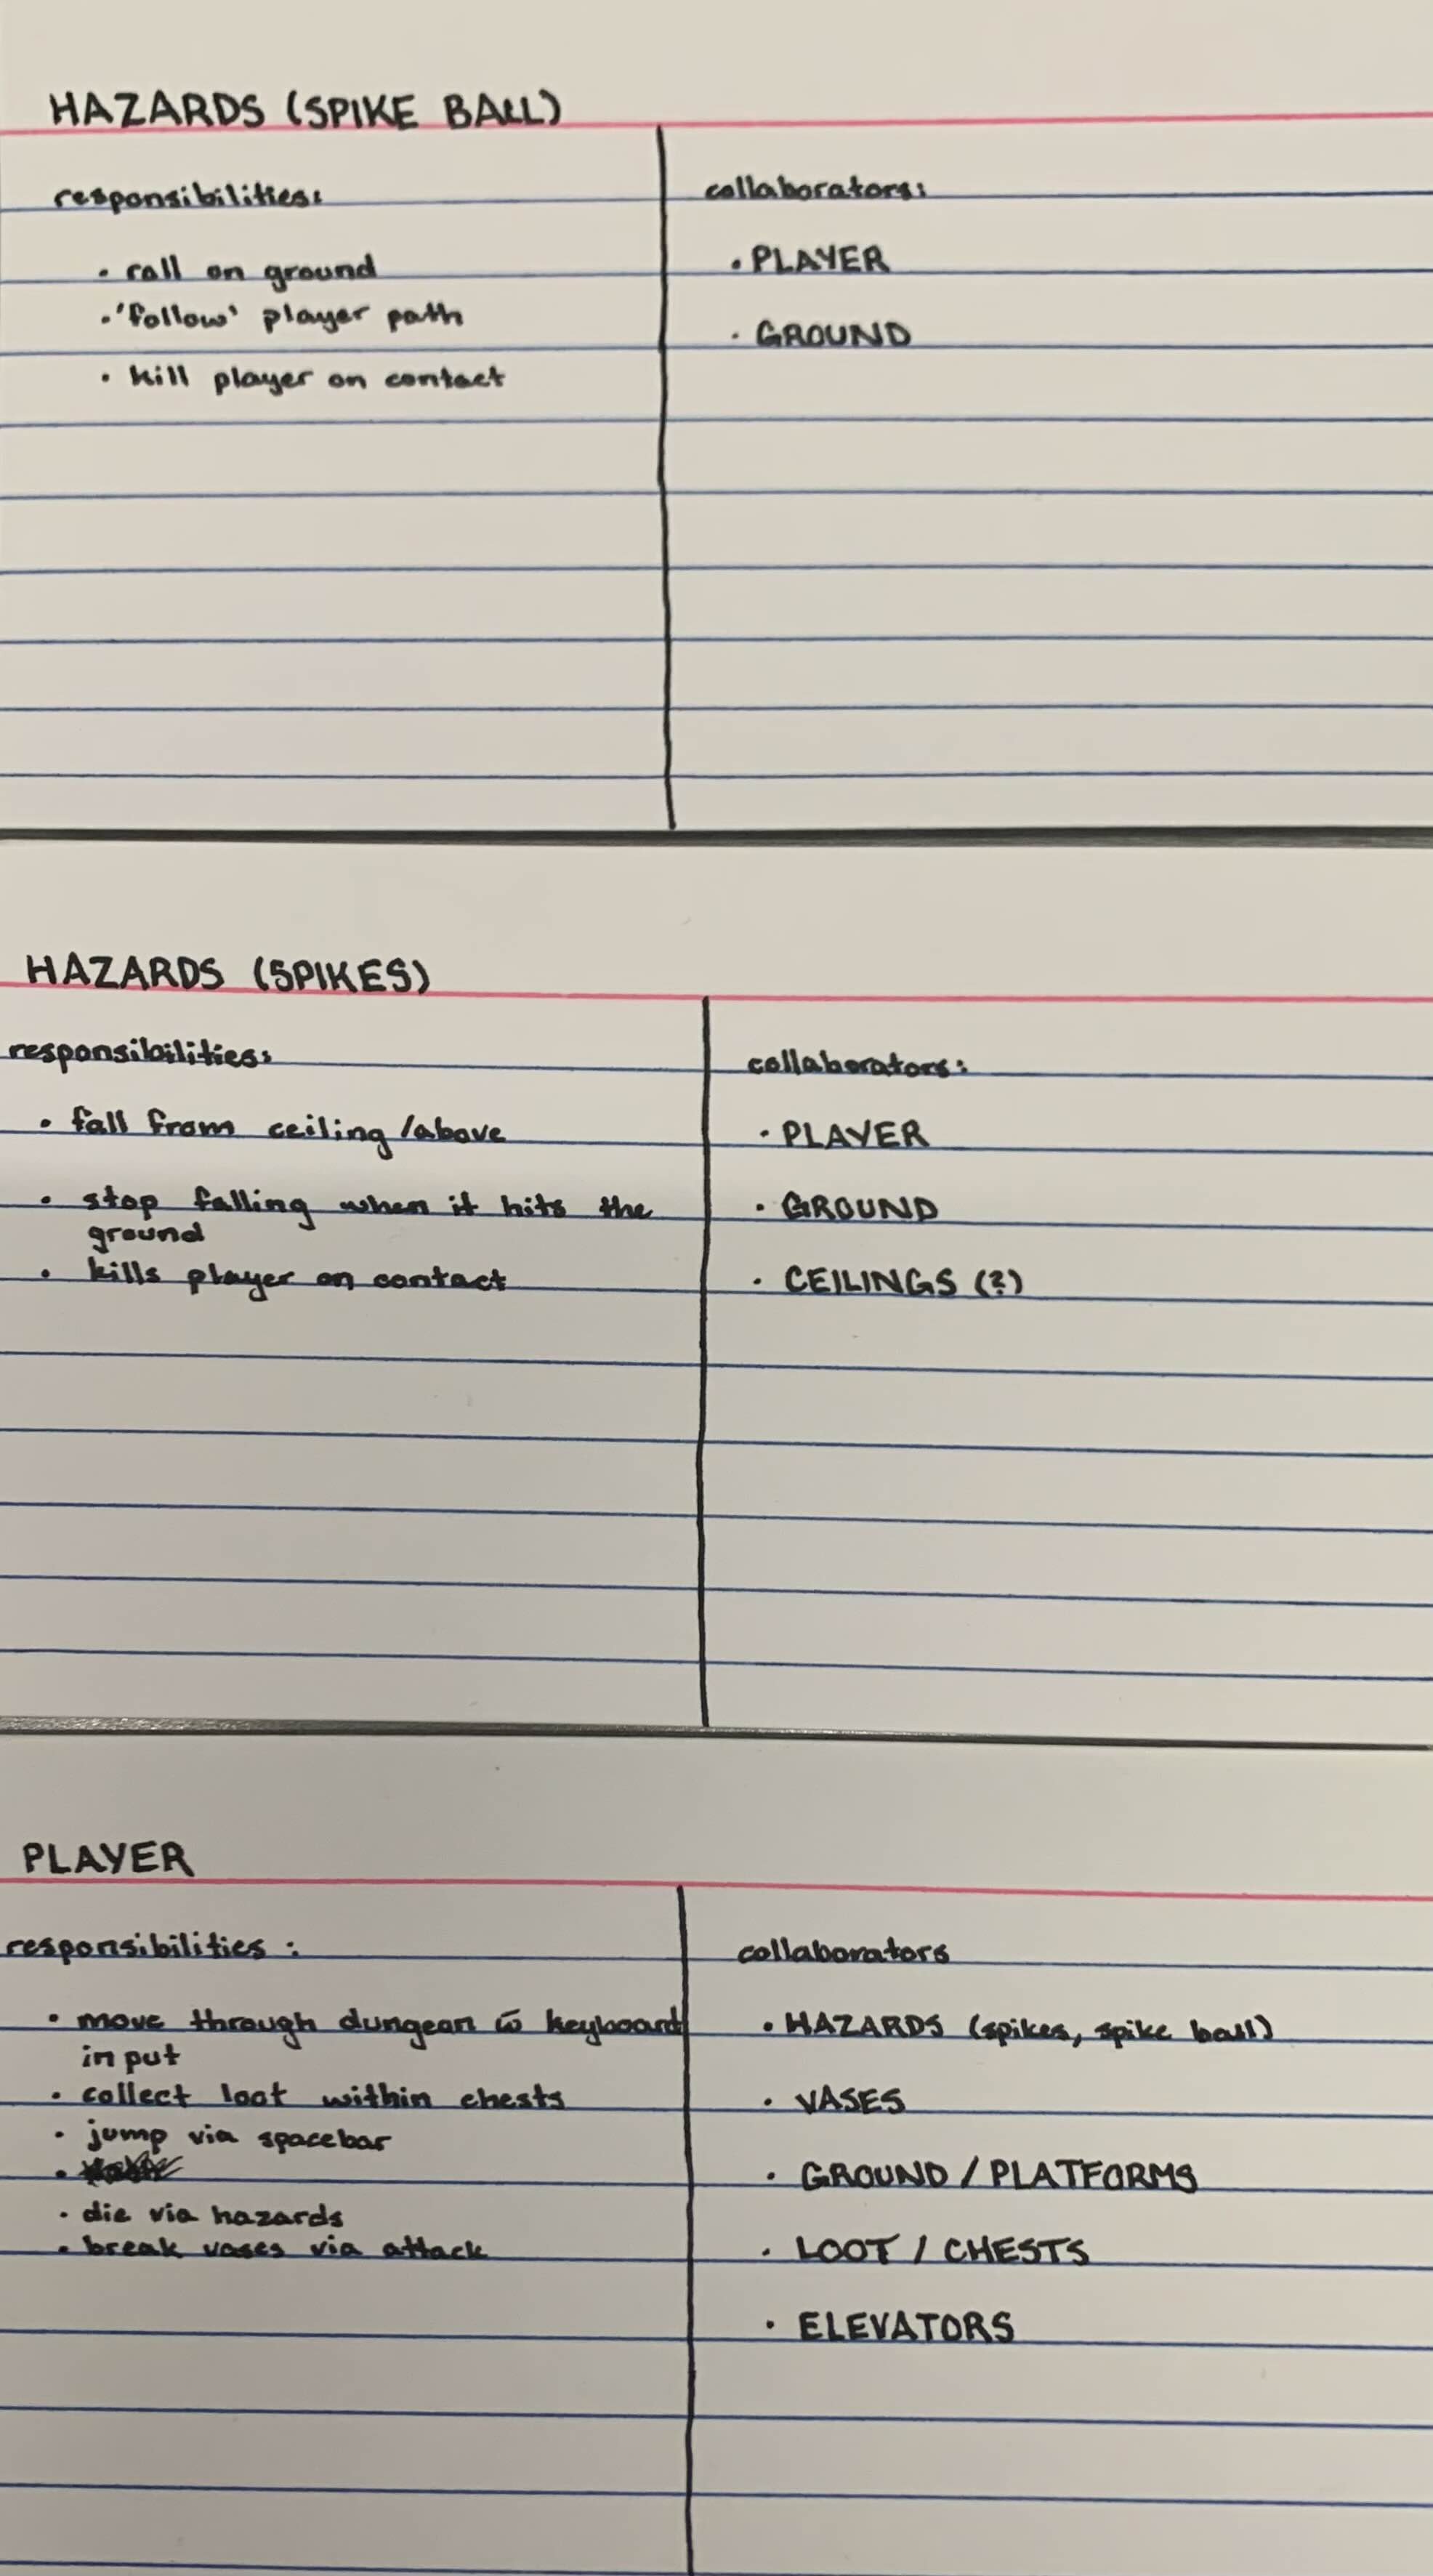 HAZARDS (SPIKE BALL)
responsibilities:
• roll on ground
• 'follow' player path
• kill player on contact
collaborators:
• PLAYER
• GROUND
HAZARDS (SPIKES)
responsibilities:
• fall from ceiling/above
• stop falling when it hits the
ground
• kills player on contact
collaborators:
• PLAYER
• GROUND
• CEILINGS (?)
PLAYER
responsibilities:
• move through dungeon w̄ keyboard
input
• collect loot within chests
• jump via spacebar
•
• die via hazards
• break vases via attack
collaborators
• HAZARDS (spikes, spike ball)
• VASES
• GROUND / PLATFORMS
• LOOT / CHESTS
• ELEVATORS